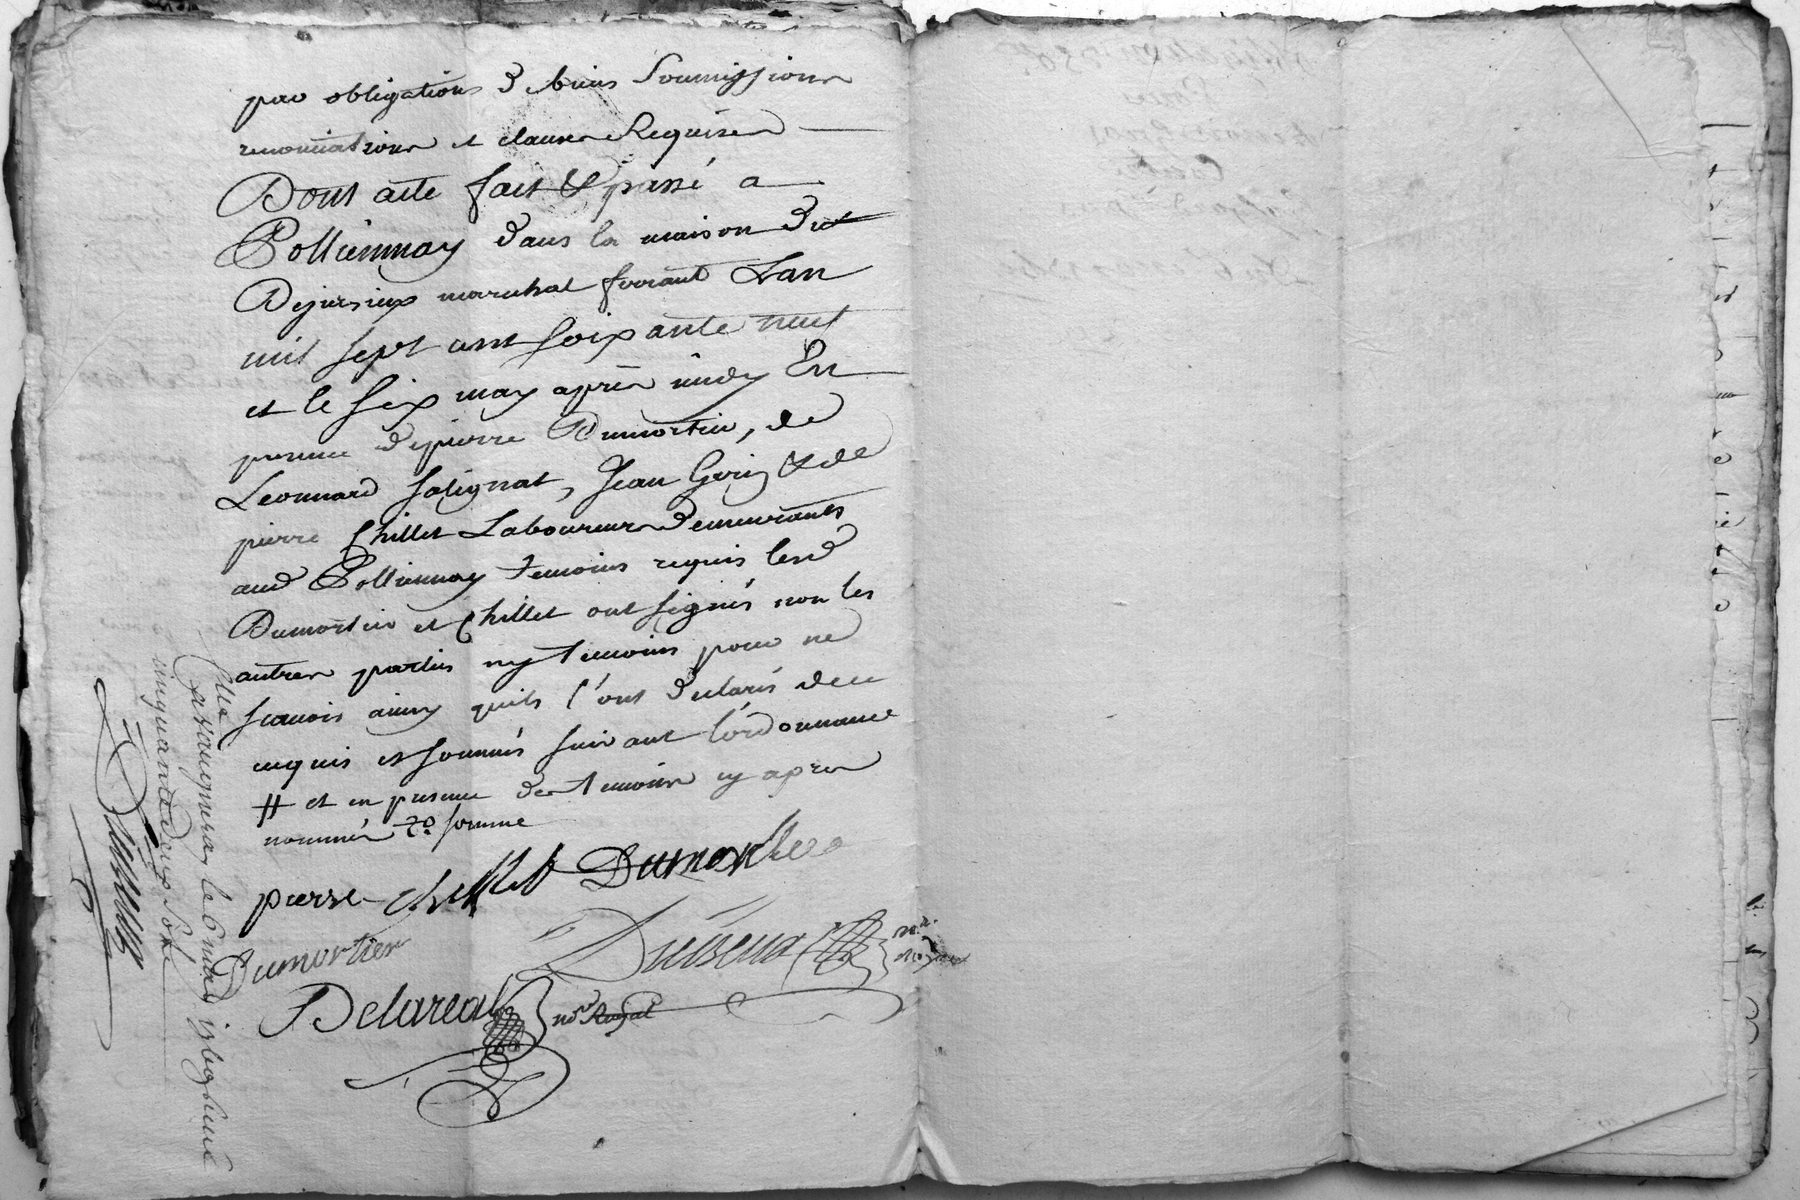 par obligations de biens Soumissions
renonciations et clauses Requises
Dont acte fait & passé a
Pollionnay dans la maison dud
Dejussieux marechal ferrant Lan
mil sept cent soixante neuf
et le six may après midy En
presence depierre Dumortier, de
Leonnard Solignat, Jean Gorin & de
pierre Chillet Laboureurs demeurants
aud Pollionnay temoins requis lesd
Dumortier et Chillet ont signés non les
autres parties ny temoins pour ne
scavoir ainsy quils l'ont declarés de ce
requis et sommés suivant l'ordonnance
# et en presence des temoins cy apres
nommés somme
pierre chillet Dumortier
Dumortier
Delareal nore Royal
Con
a vaugneray le 6 may
cinquante deux sols